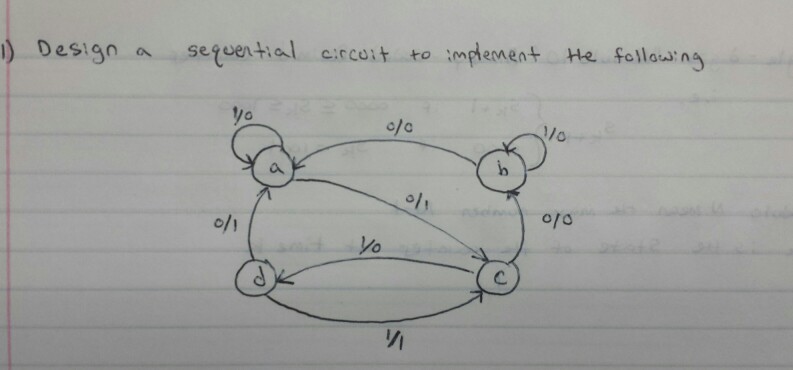 1) Design a sequential circuit to implement the following
1/0
0/0
1/0
a
b
0/1
0/1
0/0
1/0
d
c
1/1